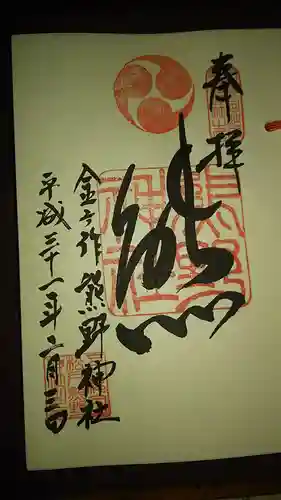 奉拝
熊
金ヶ作 熊野神社
平成三十一年二月三日